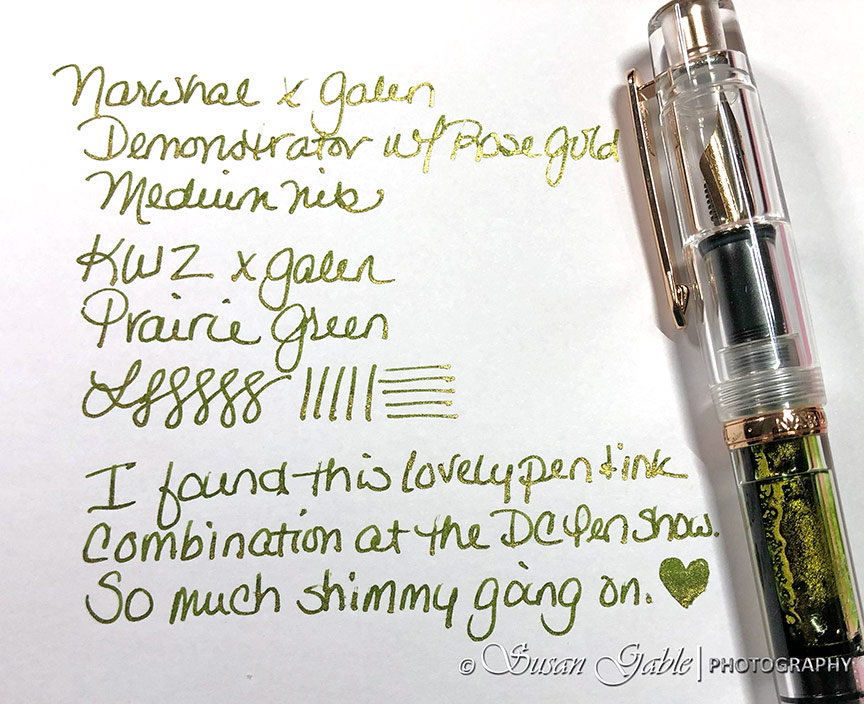 Narwhal x Galen
Demonstrator w/ Rose Gold
Medium nib
KWZ x Galen
Prairie Green
I found this lovely pen & ink
Combination at the DC Pen Show.
So much shimmy going on.
© Susan Gable | PHOTOGRAPHY